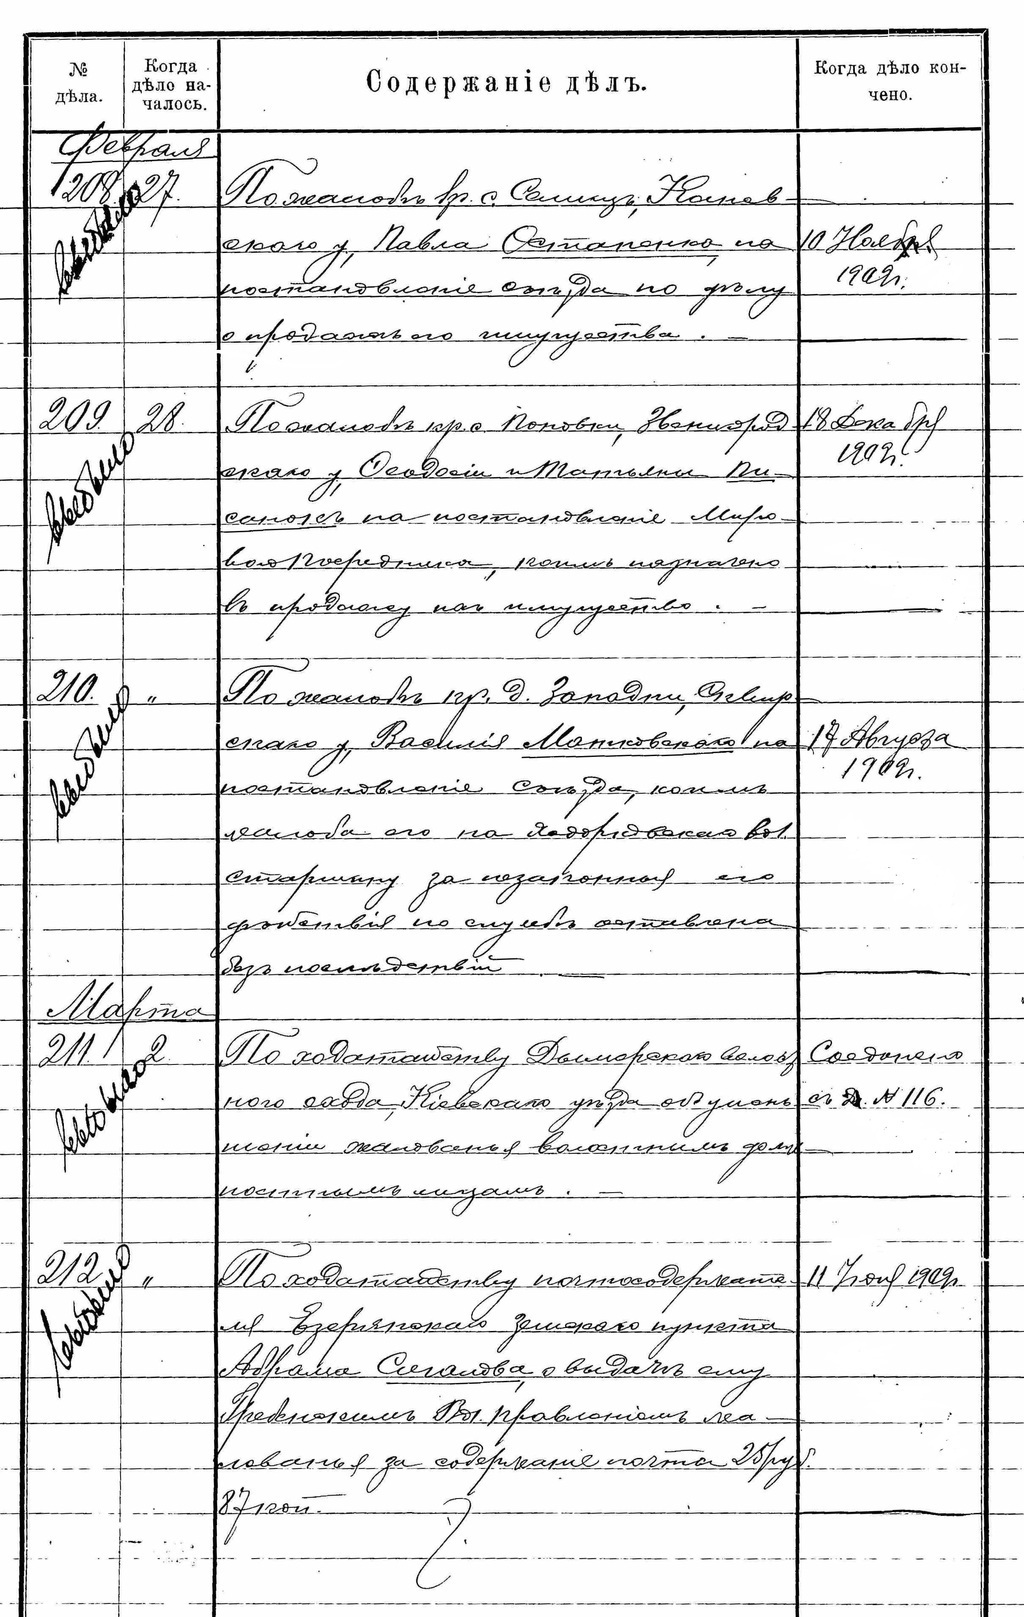 № дѣла.
Когда дѣло на-
чалось.
Содержаніе дѣлъ.
Когда дѣло кон-
чено.
Февраля
208. 27.
По жалобѣ кр. с. Селищъ, Канев-
скаго у, Павла Остапенко, на
постановленіе съѣзда по дѣлу
о продажѣ его имущества. —
10 Ноября
1909г.
209. 28.
По жалобѣ кр. с. Поповки, Звенигород
скаго у, Ѳеодосіи и Татьяны Пи-
санокъ на постановленіе Миро-
вого Посредника, коимъ назначено
въ продажу ихъ имущество. —
18 Декабря
1909г.
210. „
По жалобѣ кр. д. Западни, Сквир-
скаго у, Василія Матковскаго на
постановленіе съѣзда, коимъ
жалоба его на Ходорковскаго вол.
старшину за незаконныя его
дѣйствія по службѣ оставлена
безъ послѣдствій —
17 Августа
1909г.
Марта
211. 2.
По ходатайству Дымерскаго волост
ного схода, Кіевскаго уѣзда объ умень
шеніи жалованья волостнымъ долж
ностнымъ лицамъ. —
Соединено
съ д. № 116.
212 „
По ходатайству почтосодержате-
ля Езерянскаго земскаго пункта
Абрама Сигалова, о выдачѣ ему
Вол. Правленіемъ жа-
лованья за содержаніе почты 25 руб.
87 коп.
11 1909г.